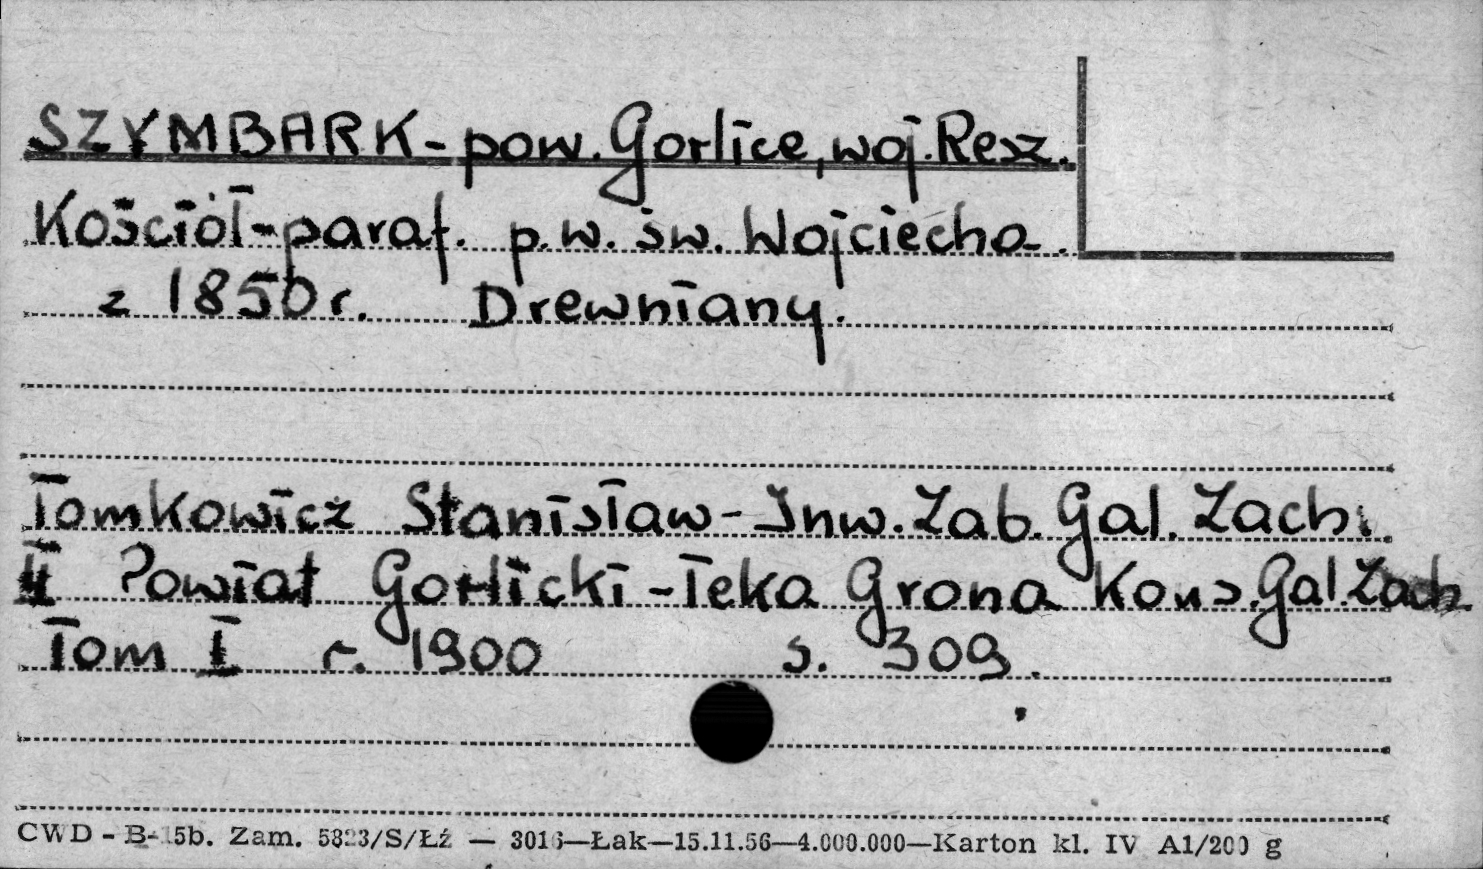 SZYMBARK - pow. Gorlice, woj. Rzesz.
Kościół - paraf. p.w. św. Wojciecha.
z 1850 r. Drewniany.
Tomkowicz Stanisław - Inw. Zab. Gal. Zach.
II Powiat Gorlicki - Teka Grona Kons. Gal. Zach.
Tom I r. 1900 s. 309.
CWD - B-15b. Zam. 5823/S/Łź — 3016—Łak—15.11.56—4.000.000—Karton kl. IV A1/200 g